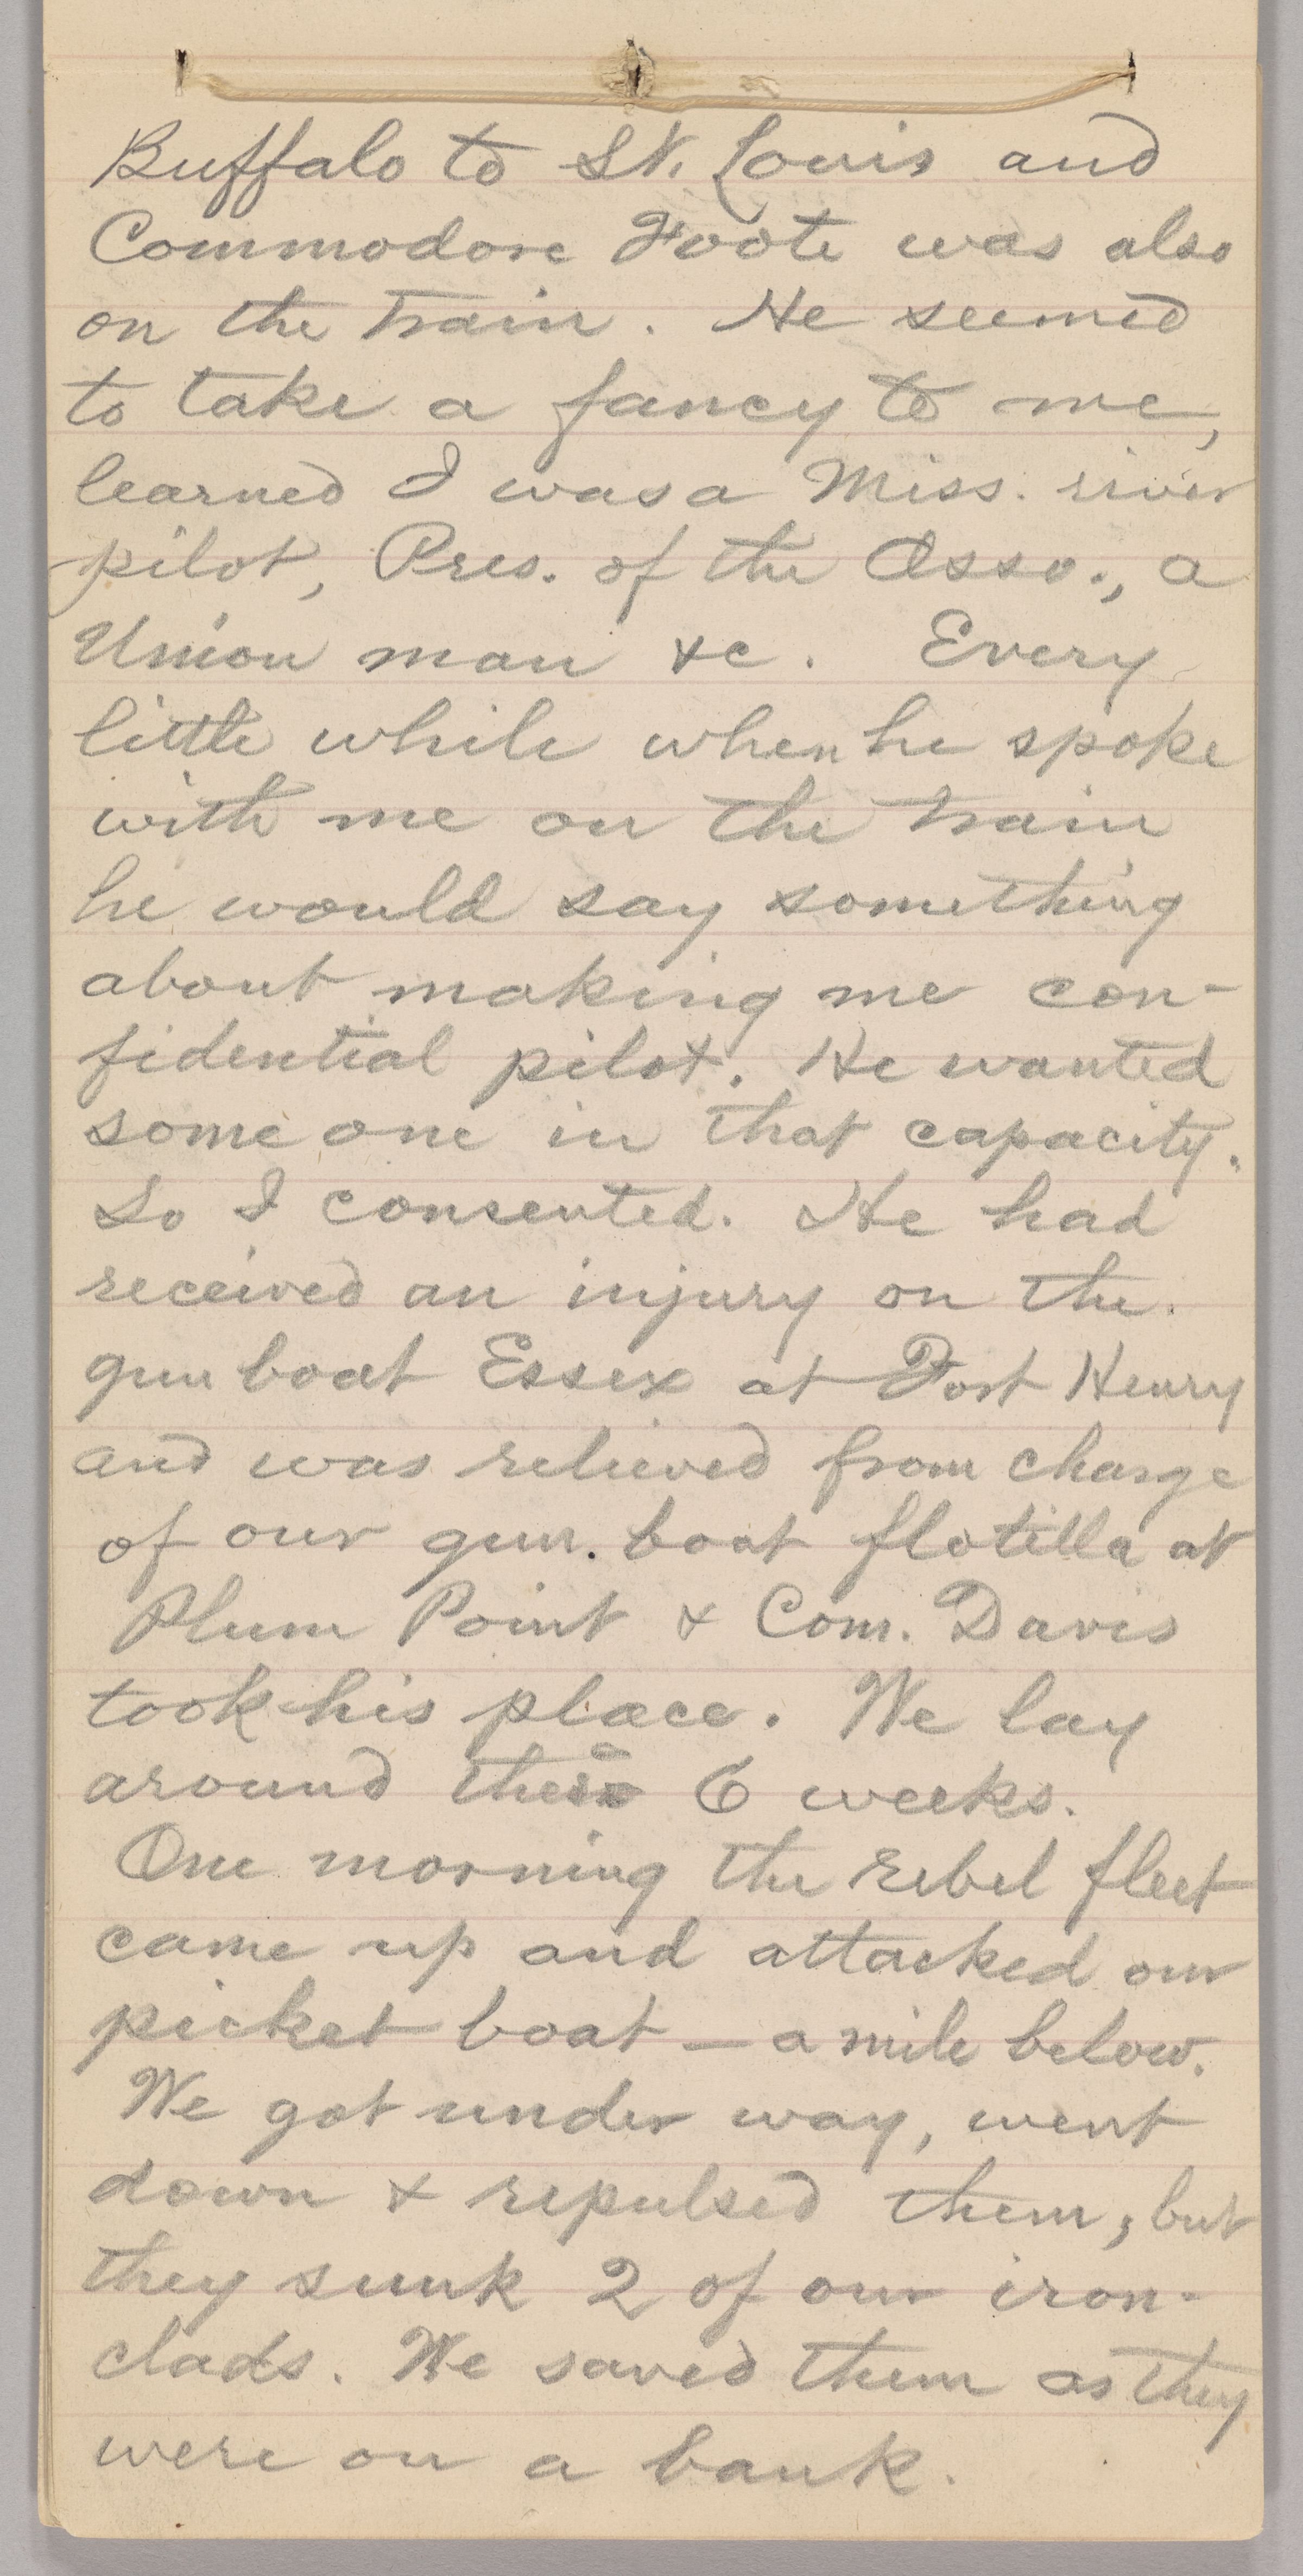 Buffalo to St. Louis and
Commodore Foote was also
on the train. He seemed
to take a fancy to me,
learned I was a Miss. river
pilot, Pres. of the Asso., a
Union man &c. Every
little while when he spoke
with me on the train
he would say something
about making me con-
fidential pilot. He wanted
some one in that capacity.
So I consented. He had
received an injury on the
gun boat Essex at Fort Henry
and was relieved from charge
of our gun boat flotilla at
Plum Point & Com. Davis
took his place. We lay
around there 6 weeks.
One morning the rebel fleet
came up and attacked our
picket boat — a mile below.
We got under way, went
down & repulsed them, but
they sunk 2 of our iron-
clads. We saved them as they
were on a bank.